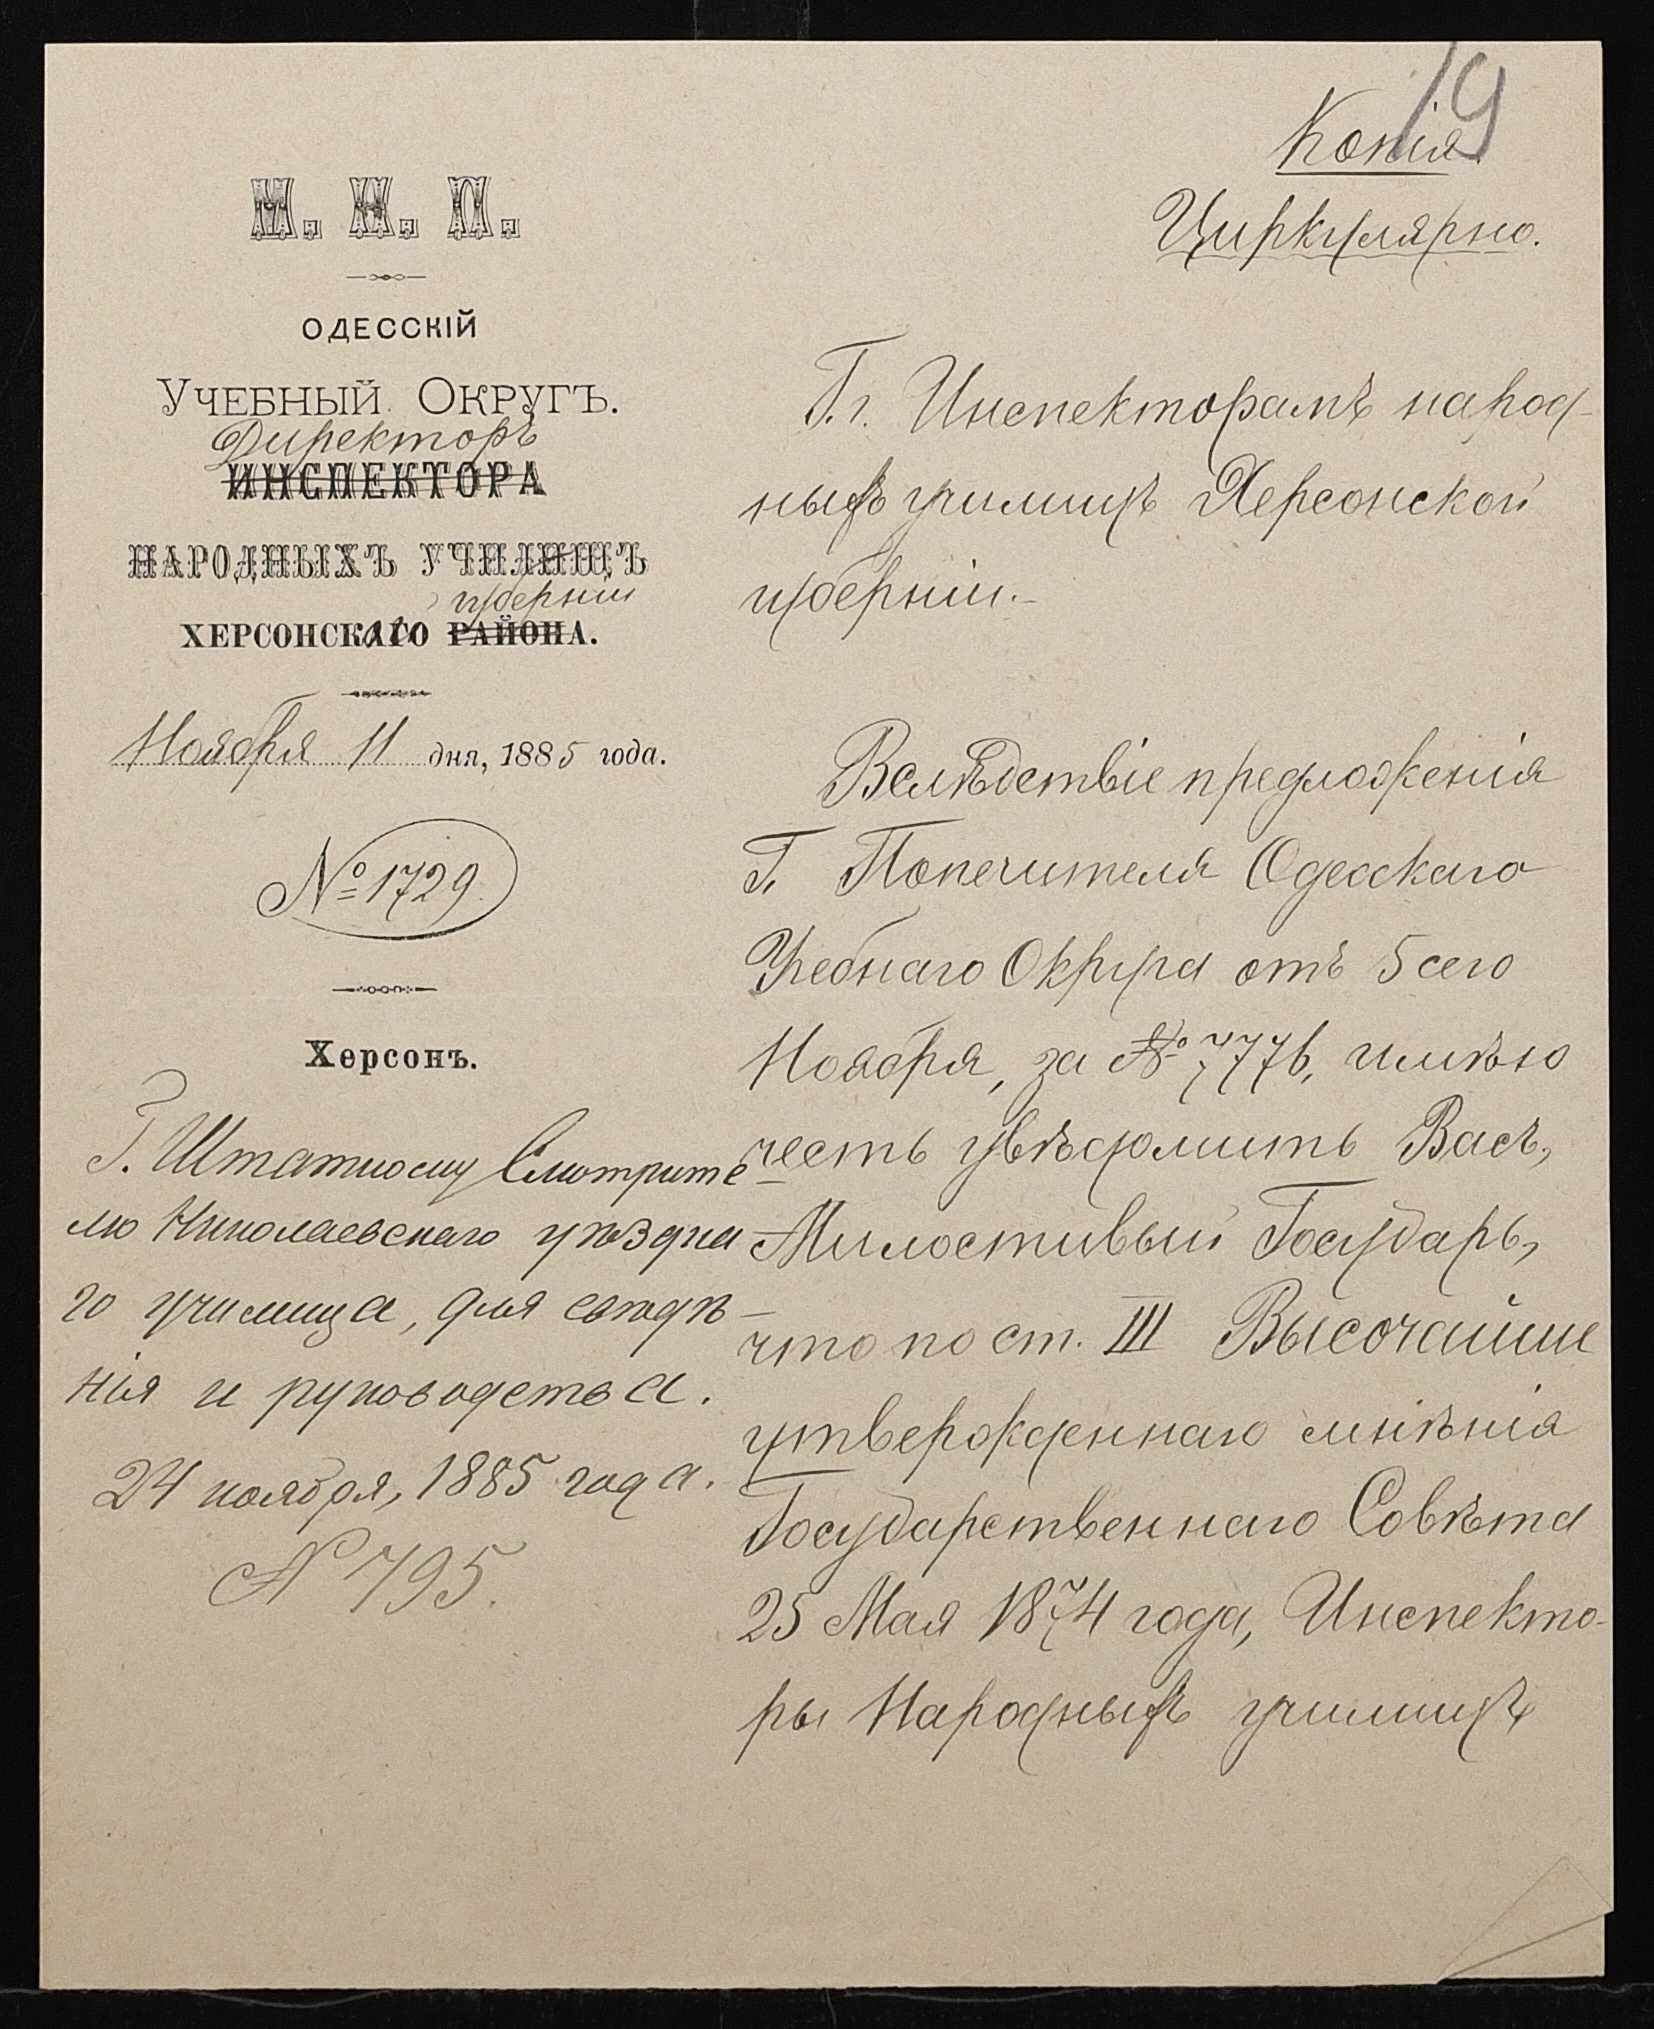 19
Копія.
Циркулярно.
М. Н. П.
ОДЕССКІЙ
УЧЕБНЫЙ ОКРУГЪ.
Директоръ
ИНСПЕКТОРА
НАРОДНЫХЪ УЧИЛИЩЪ
губерніи
ХЕРСОНСКАГО РАЙОНА.
Ноября 11 дня, 1885 года.
№ 1729
Херсонъ.
Г. Штатному Смотрите-
лю Николаевскаго уѣздна
го училища, для свѣдѣ-
нія и руководства.
24 ноября, 1885 года.
№ 795.
Г.г. Инспекторамъ народ-
ныхъ училищъ Херсонской
губерніи.-
Вслѣдствіе предложенія
Г. Попечителя Одесскаго
Учебнаго Округа отъ 5 сего
Ноября, за № 7776, имѣю
честь увѣдомить Васъ,
Милостивый Государь,
что по ст. III Высочайше
утвержденнаго мнѣнія
Государственнаго Совѣта
25 Мая 1874 года, Инспекто-
ры Народныхъ училищъ